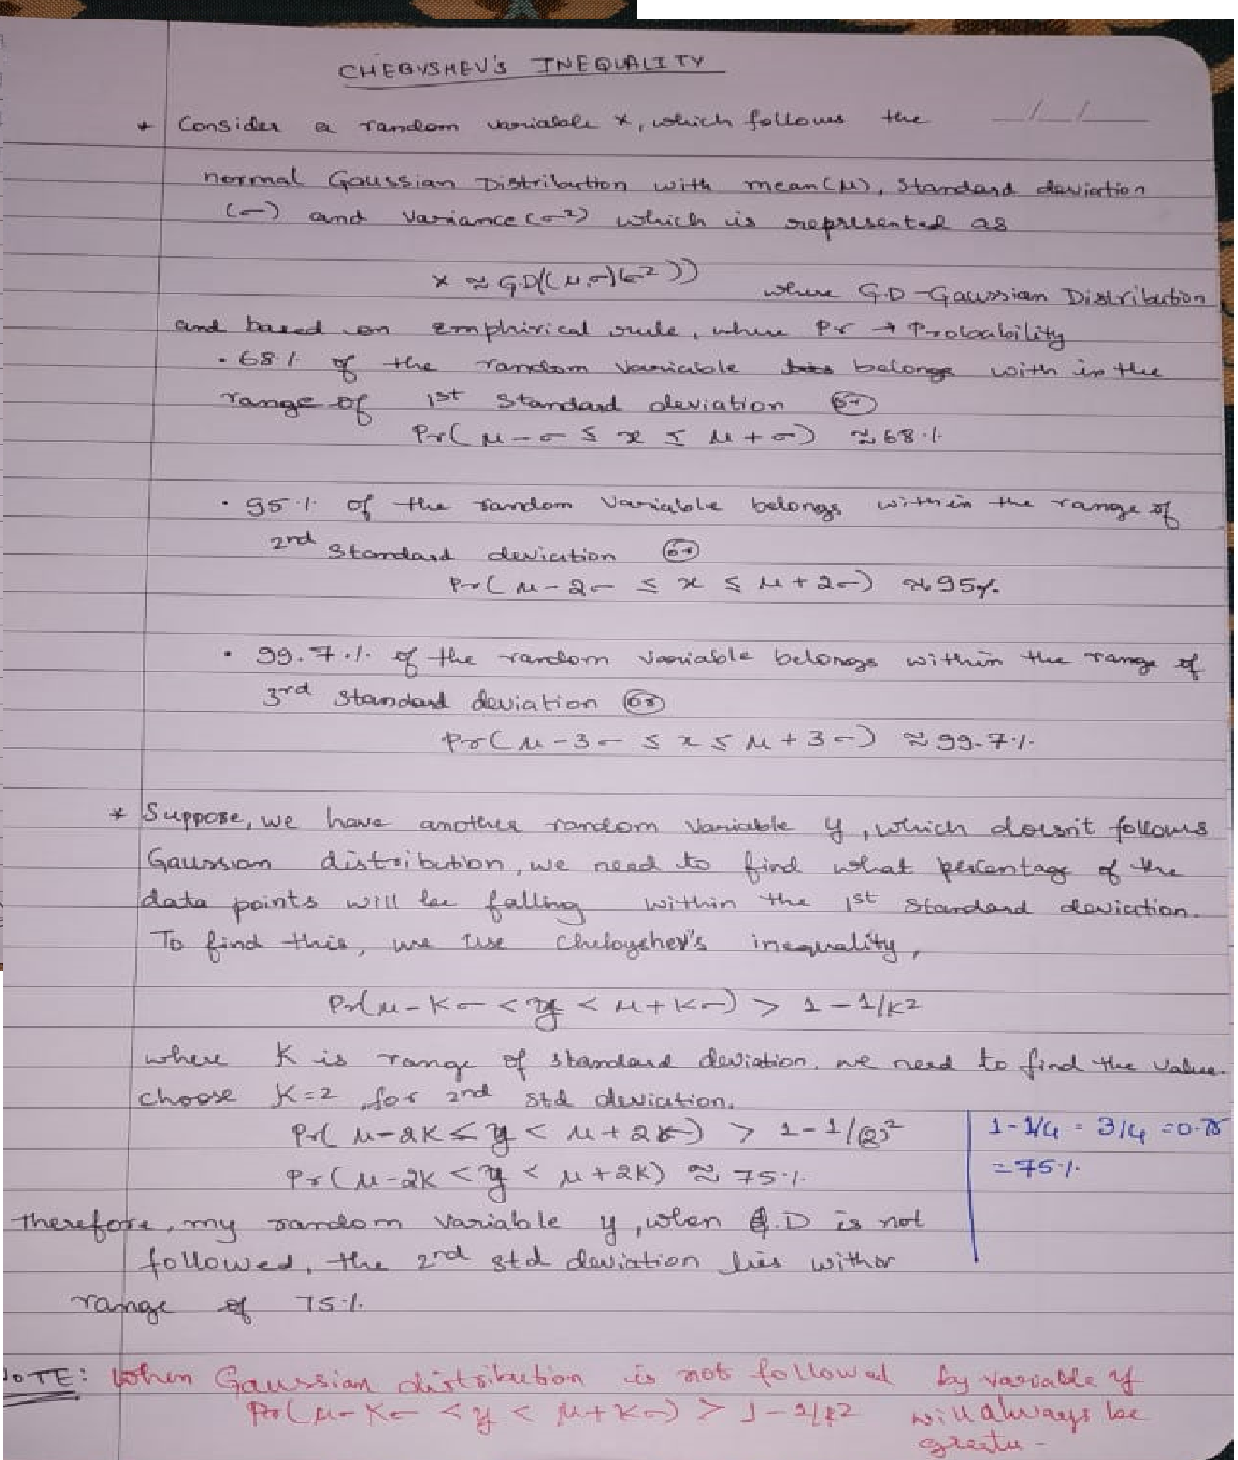 CHEBYSHEV'S INEQUALITY
* Consider a random variable x, which follows the
normal Gaussian Distribution with mean(μ), Standard deviation
(σ) and variance(σ²) which is represented as
x ≈ G.D((μ,σ)(σ²)) where G.D-Gaussian Distribution
and based on emphirical rule, where Pr → Probability
· 68% of the random variable belongs with in the
range of 1st Standard deviation (or)
Pr(μ-σ ≤ x ≤ μ+σ) ≈ 68%
· 95% of the random variable belongs within the range of
2nd Standard deviation (or)
Pr(μ-2σ ≤ x ≤ μ+2σ) ≈ 95%
· 99.7% of the random variable belongs within the range of
3rd Standard deviation (or)
Pr(μ-3σ ≤ x ≤ μ+3σ) ≈ 99.7%
* Suppose, we have another random variable y, which doesn't follows
Gaussian distribution, we need to find what percentage of the
data points will be falling within the 1st Standard deviation.
To find this, we use Chebyshev's inequality,
Pr(μ-Kσ < y < μ+Kσ) > 1-1/K²
where K is range of standard deviation. we need to find the value.
choose K=2 for 2nd std deviation.
Pr(μ-2K ≤ y < μ+2K) > 1-1/(2)²
1-1/4 = 3/4 = 0.75
Pr(μ-2K < y < μ+2K) ≈ 75%
= 75%
therefore, my random variable y, when G.D is not
followed, the 2nd std deviation lies
range of 75%
NOTE: When Gaussian distribution is not followed by variable y
Pr(μ-Kσ < y < μ+Kσ) > 1-1/k² will always be